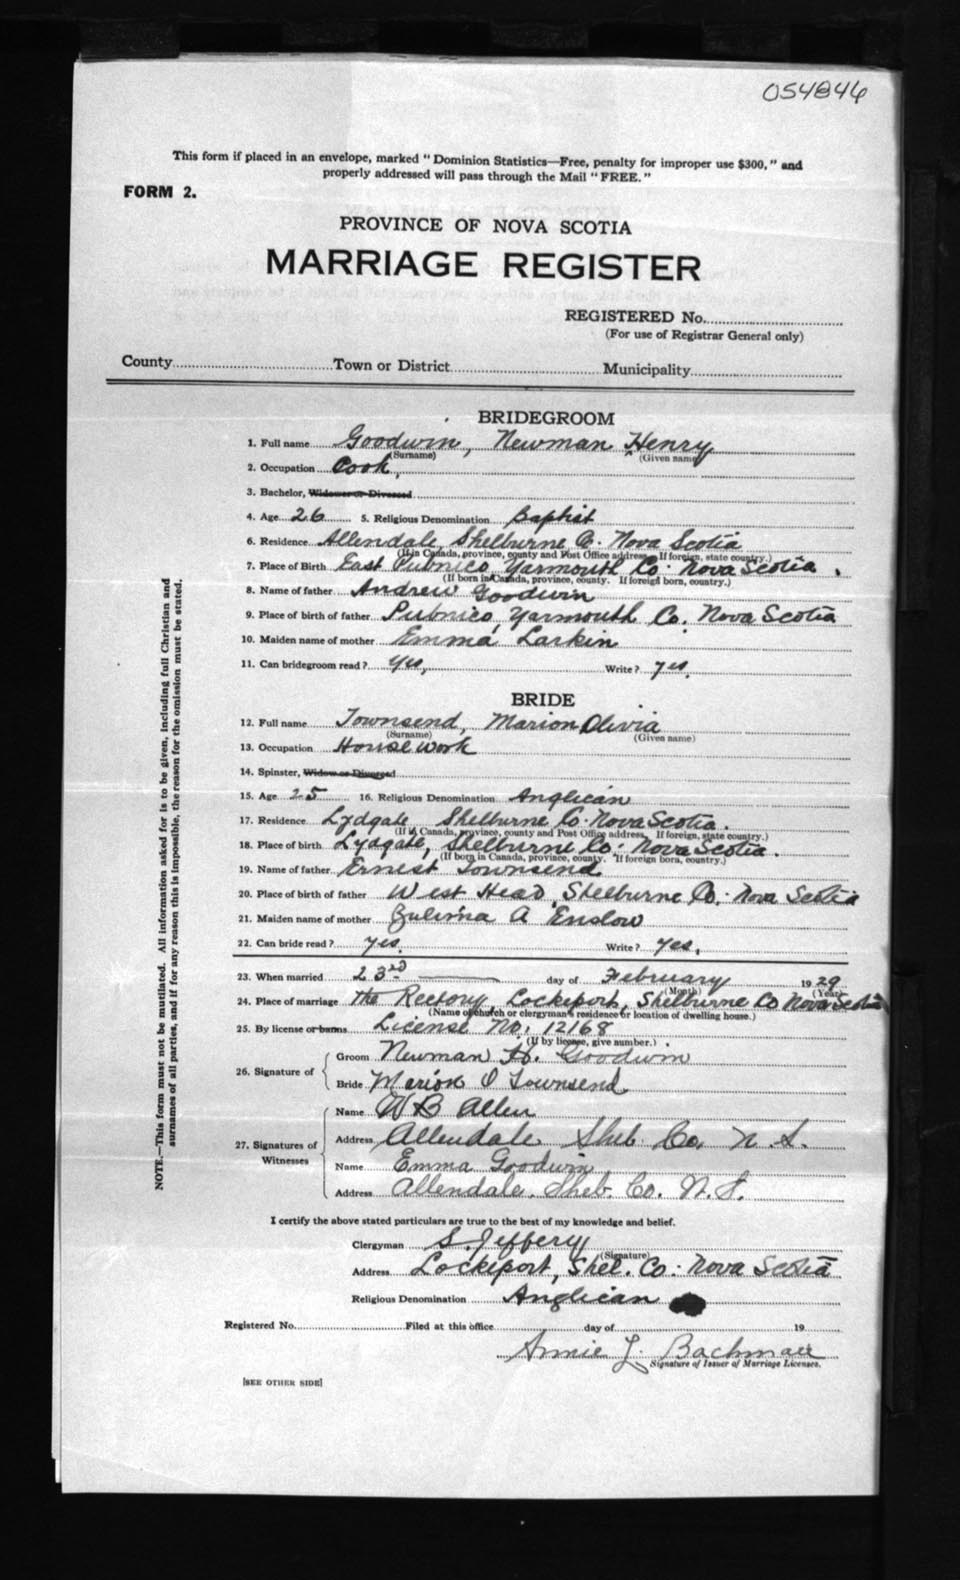 054846
This form if placed in an envelope, marked "Dominion Statistics—Free, penalty for improper use $300," and
properly addressed will pass through the Mail "FREE."
FORM 2.
PROVINCE OF NOVA SCOTIA
MARRIAGE REGISTER
REGISTERED No.
(For use of Registrar General only)
County Town or District Municipality
BRIDEGROOM
1. Full name Goodwin, Newman Henry
(Surname) (Given name)
2. Occupation Cook,
3. Bachelor, Widower or Divorced
4. Age 26 5. Religious Denomination Baptist
6. Residence Allendale, Shelburne Co. Nova Scotia
(If in Canada, province, county and Post Office address. If foreign, state country.)
7. Place of Birth East Pubnico, Yarmouth Co. Nova Scotia.
(If born in Canada, province, county. If foreign born, country.)
8. Name of father Andrew Goodwin
9. Place of birth of father Pubnico, Yarmouth Co. Nova Scotia
10. Maiden name of mother Emma Larkin
11. Can bridegroom read? Yes, Write? yes.
BRIDE
12. Full name Townsend, Marion Olivia
(Surname) (Given name)
13. Occupation Housework
14. Spinster, Widow or Divorced
15. Age 25 16. Religious Denomination Anglican
17. Residence Lydgate Shelburne Co. Nova Scotia.
(If in Canada, province, county and Post Office address. If foreign, state country.)
18. Place of birth Lydgate, Shelburne Co. Nova Scotia.
(If born in Canada, province, county. If foreign born, country.)
19. Name of father Ernest Townsend.
20. Place of birth of father West Head, Shelburne Co. Nova Scotia
21. Maiden name of mother Zulima A Enslow
22. Can bride read? yes. Write? Yes.
23. When married 23rd day of February 1929
(Month) (Year)
24. Place of marriage The Rectory, Lockeport, Shelburne Co Nova Scotia
(Name of church or clergyman's residence or location of dwelling house.)
25. By license or banns License No. 12168
(If by license, give number.)
26. Signature of
Groom Newman H. Goodwin
Bride Marion O Townsend
27. Signatures of Witnesses
Name W B Allen
Address Allendale Shel. Co, N. S.
Name Emma Goodwin
Address Allendale. Shel. Co. N. S.
I certify the above stated particulars are true to the best of my knowledge and belief.
Clergyman S. Jeffery
(Signature)
Address Lockeport, Shel. Co. Nova Scotia
Religious Denomination Anglican
Registered No. Filed at this office day of 19
Annie L. Bachman
Signature of Issuer of Marriage Licenses.
[SEE OTHER SIDE]
NOTE.—This form must not be mutilated. All information asked for is to be given, including full Christian and
surnames of all parties, and if for any reason this is impossible, the reason for the omission must be stated.